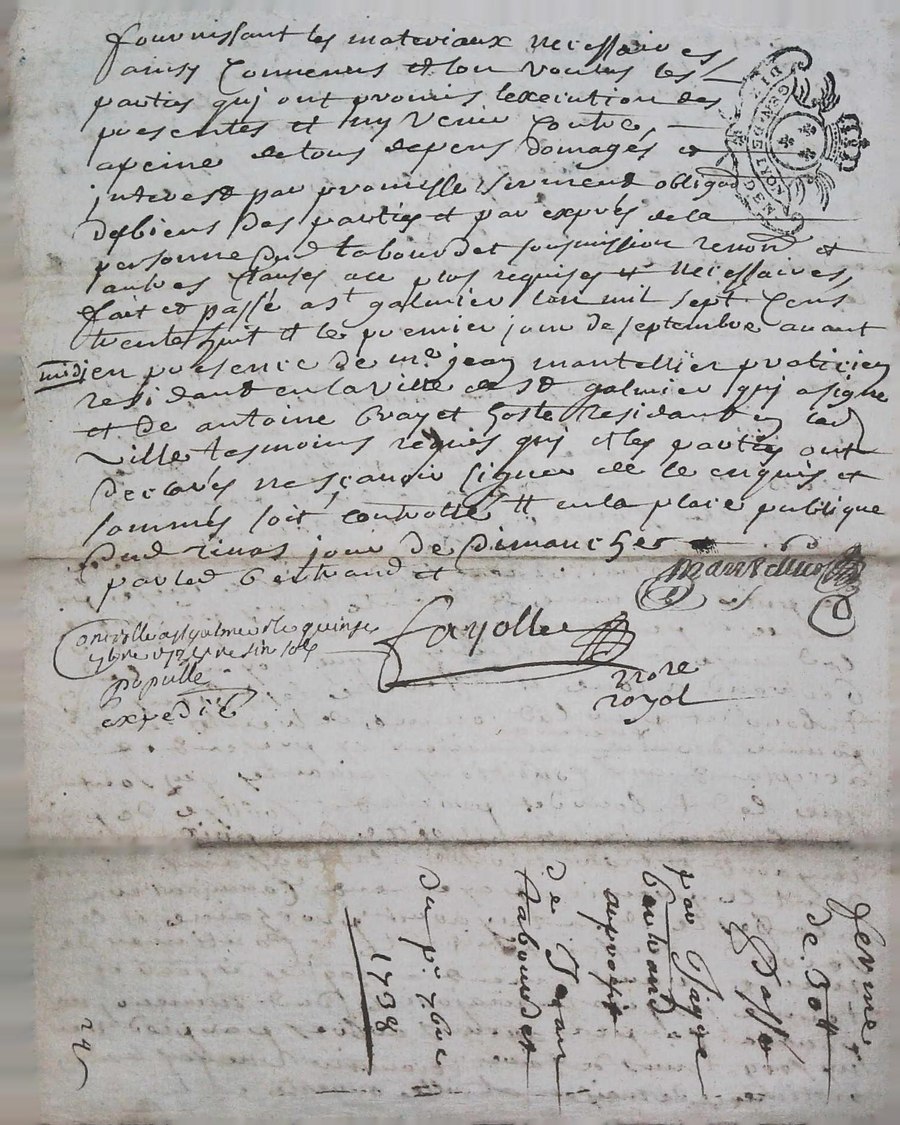 fournissant les materiaux necessaires
ainsy convenus et lon voulus les
parties qui ont promis lexecution des
presentes et ny venir contre,
apeine de tous depens domages et
interest par promesse serment obligaõn
de biens des parties et par exprés de la
personne dud tabourdet soumission renonõn et
autres clauses ace plus requises et necessaires,
fait et passé a st galmier lan mil sept cens
trente huit et le premier jour de septembre avant
midj en presence de me jean mantellier praticien
residant en la ville de st galmier qui a signé
et de antoine hoste residant en lad
ville tesmoins requis qui et les parties ont
declarés ne sçavoir signer de ce enquis et
sommés soit controllé et en la place publique
dud jour de dimanche
par led bertrand et
mantellier
fayolle
nore
royal
Controllé a st galmier le quinze
7bre 1738 six sols
populle
expedié
ferme
de 30tt
par
bertrand
auproffit
de Jean
tabourdet
du pr 7bre
1738
24